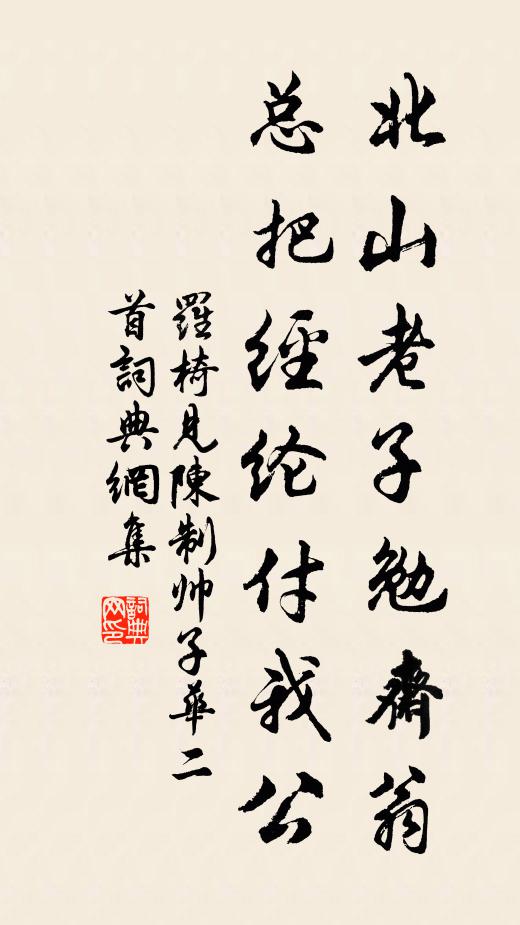 北山老子勉齋翁
总把經纶付我公
羅椅見陳制帅子華二
首詞典網集
詞典
网印